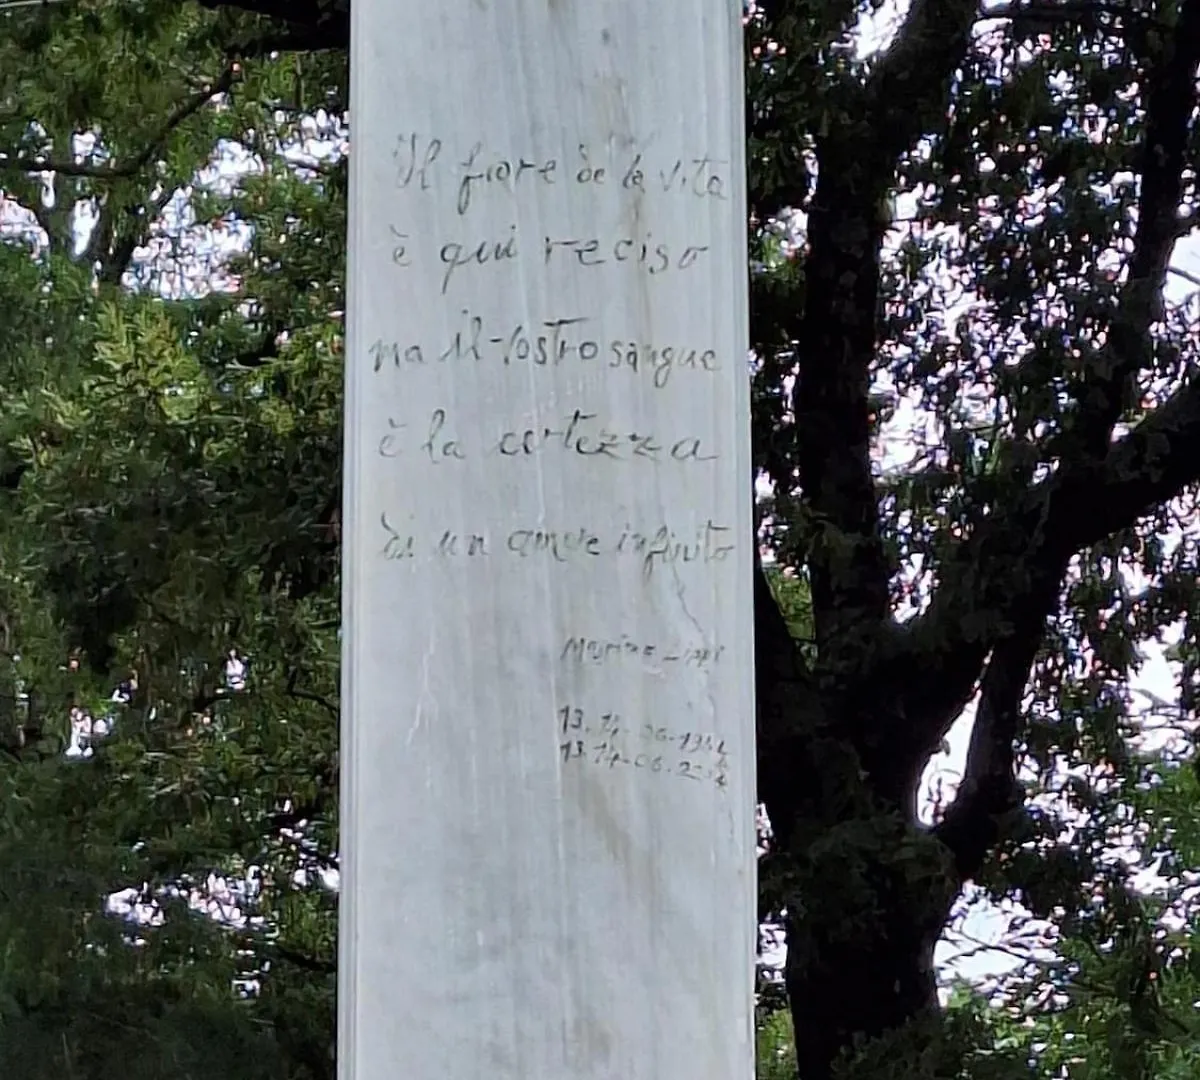 Il fiore de la vita
è qui reciso
ma il vostro sangue
è la certezza
di un amore infinito
13.14-06-1944
13.14-06.